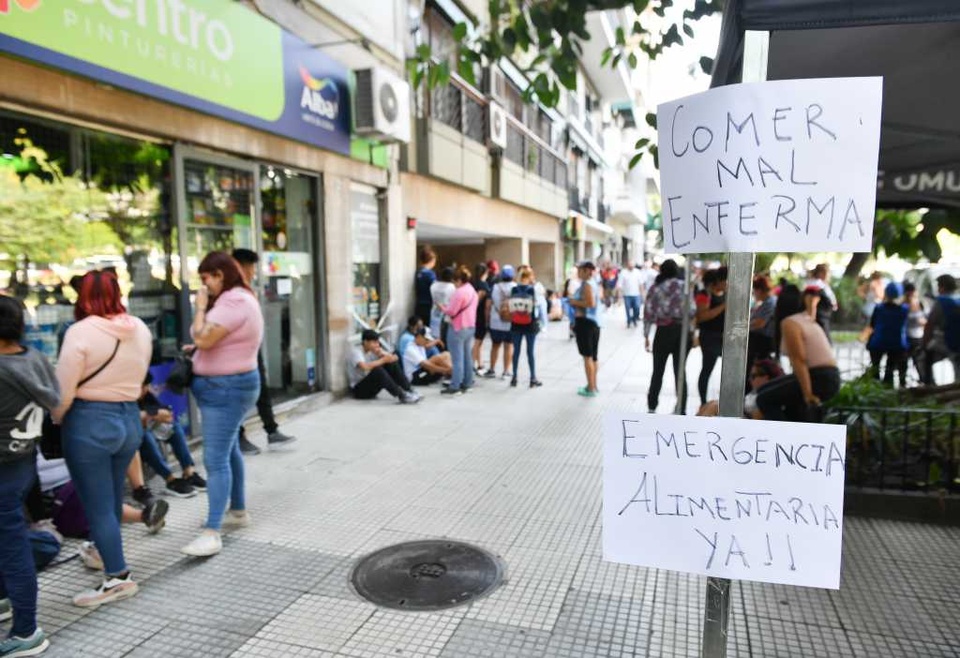 Centro
PINTURERÍAS
Alba
COMER
MAL
ENFERMA
EMERGENCIA
ALIMENTARIA
YA!!